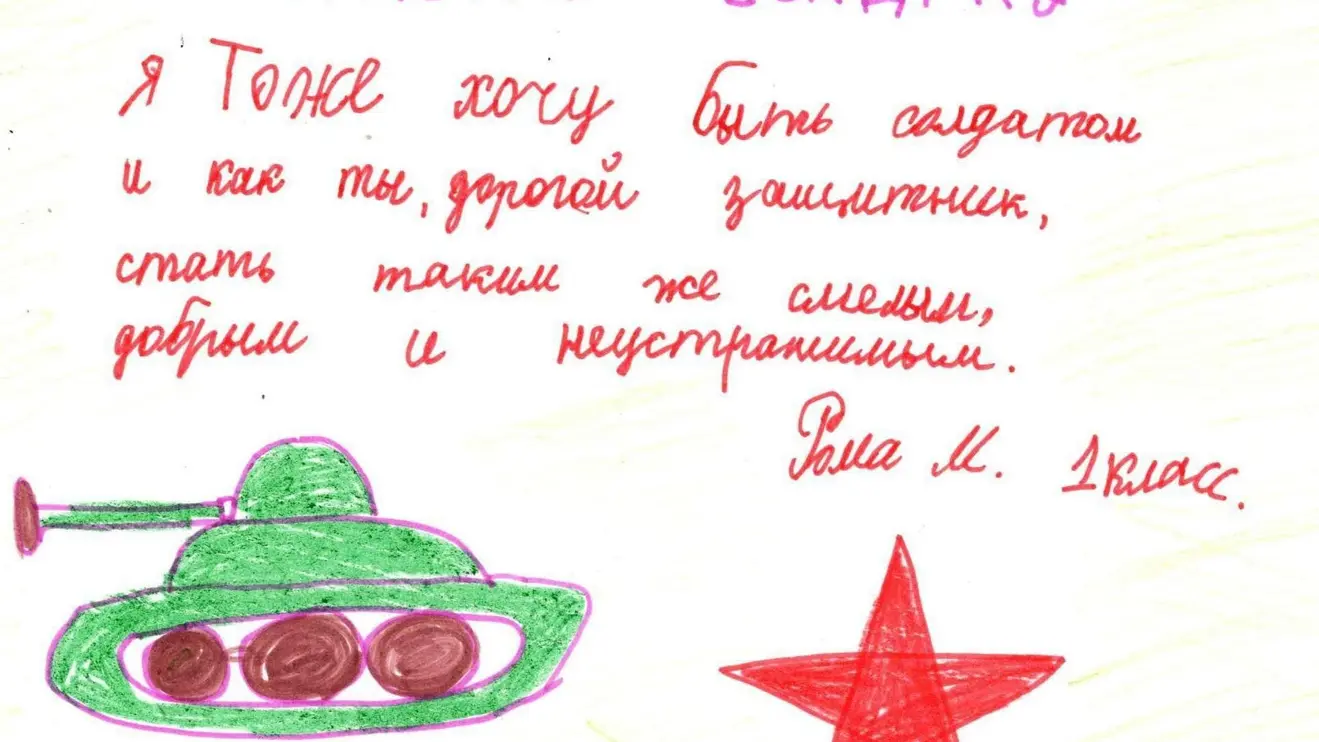 Я Тоже хочу быть солдатом
и как ты, дорогой защитник,
стать таким же смелым,
добрым и неустрашимым.
Рома М. 1 класс.